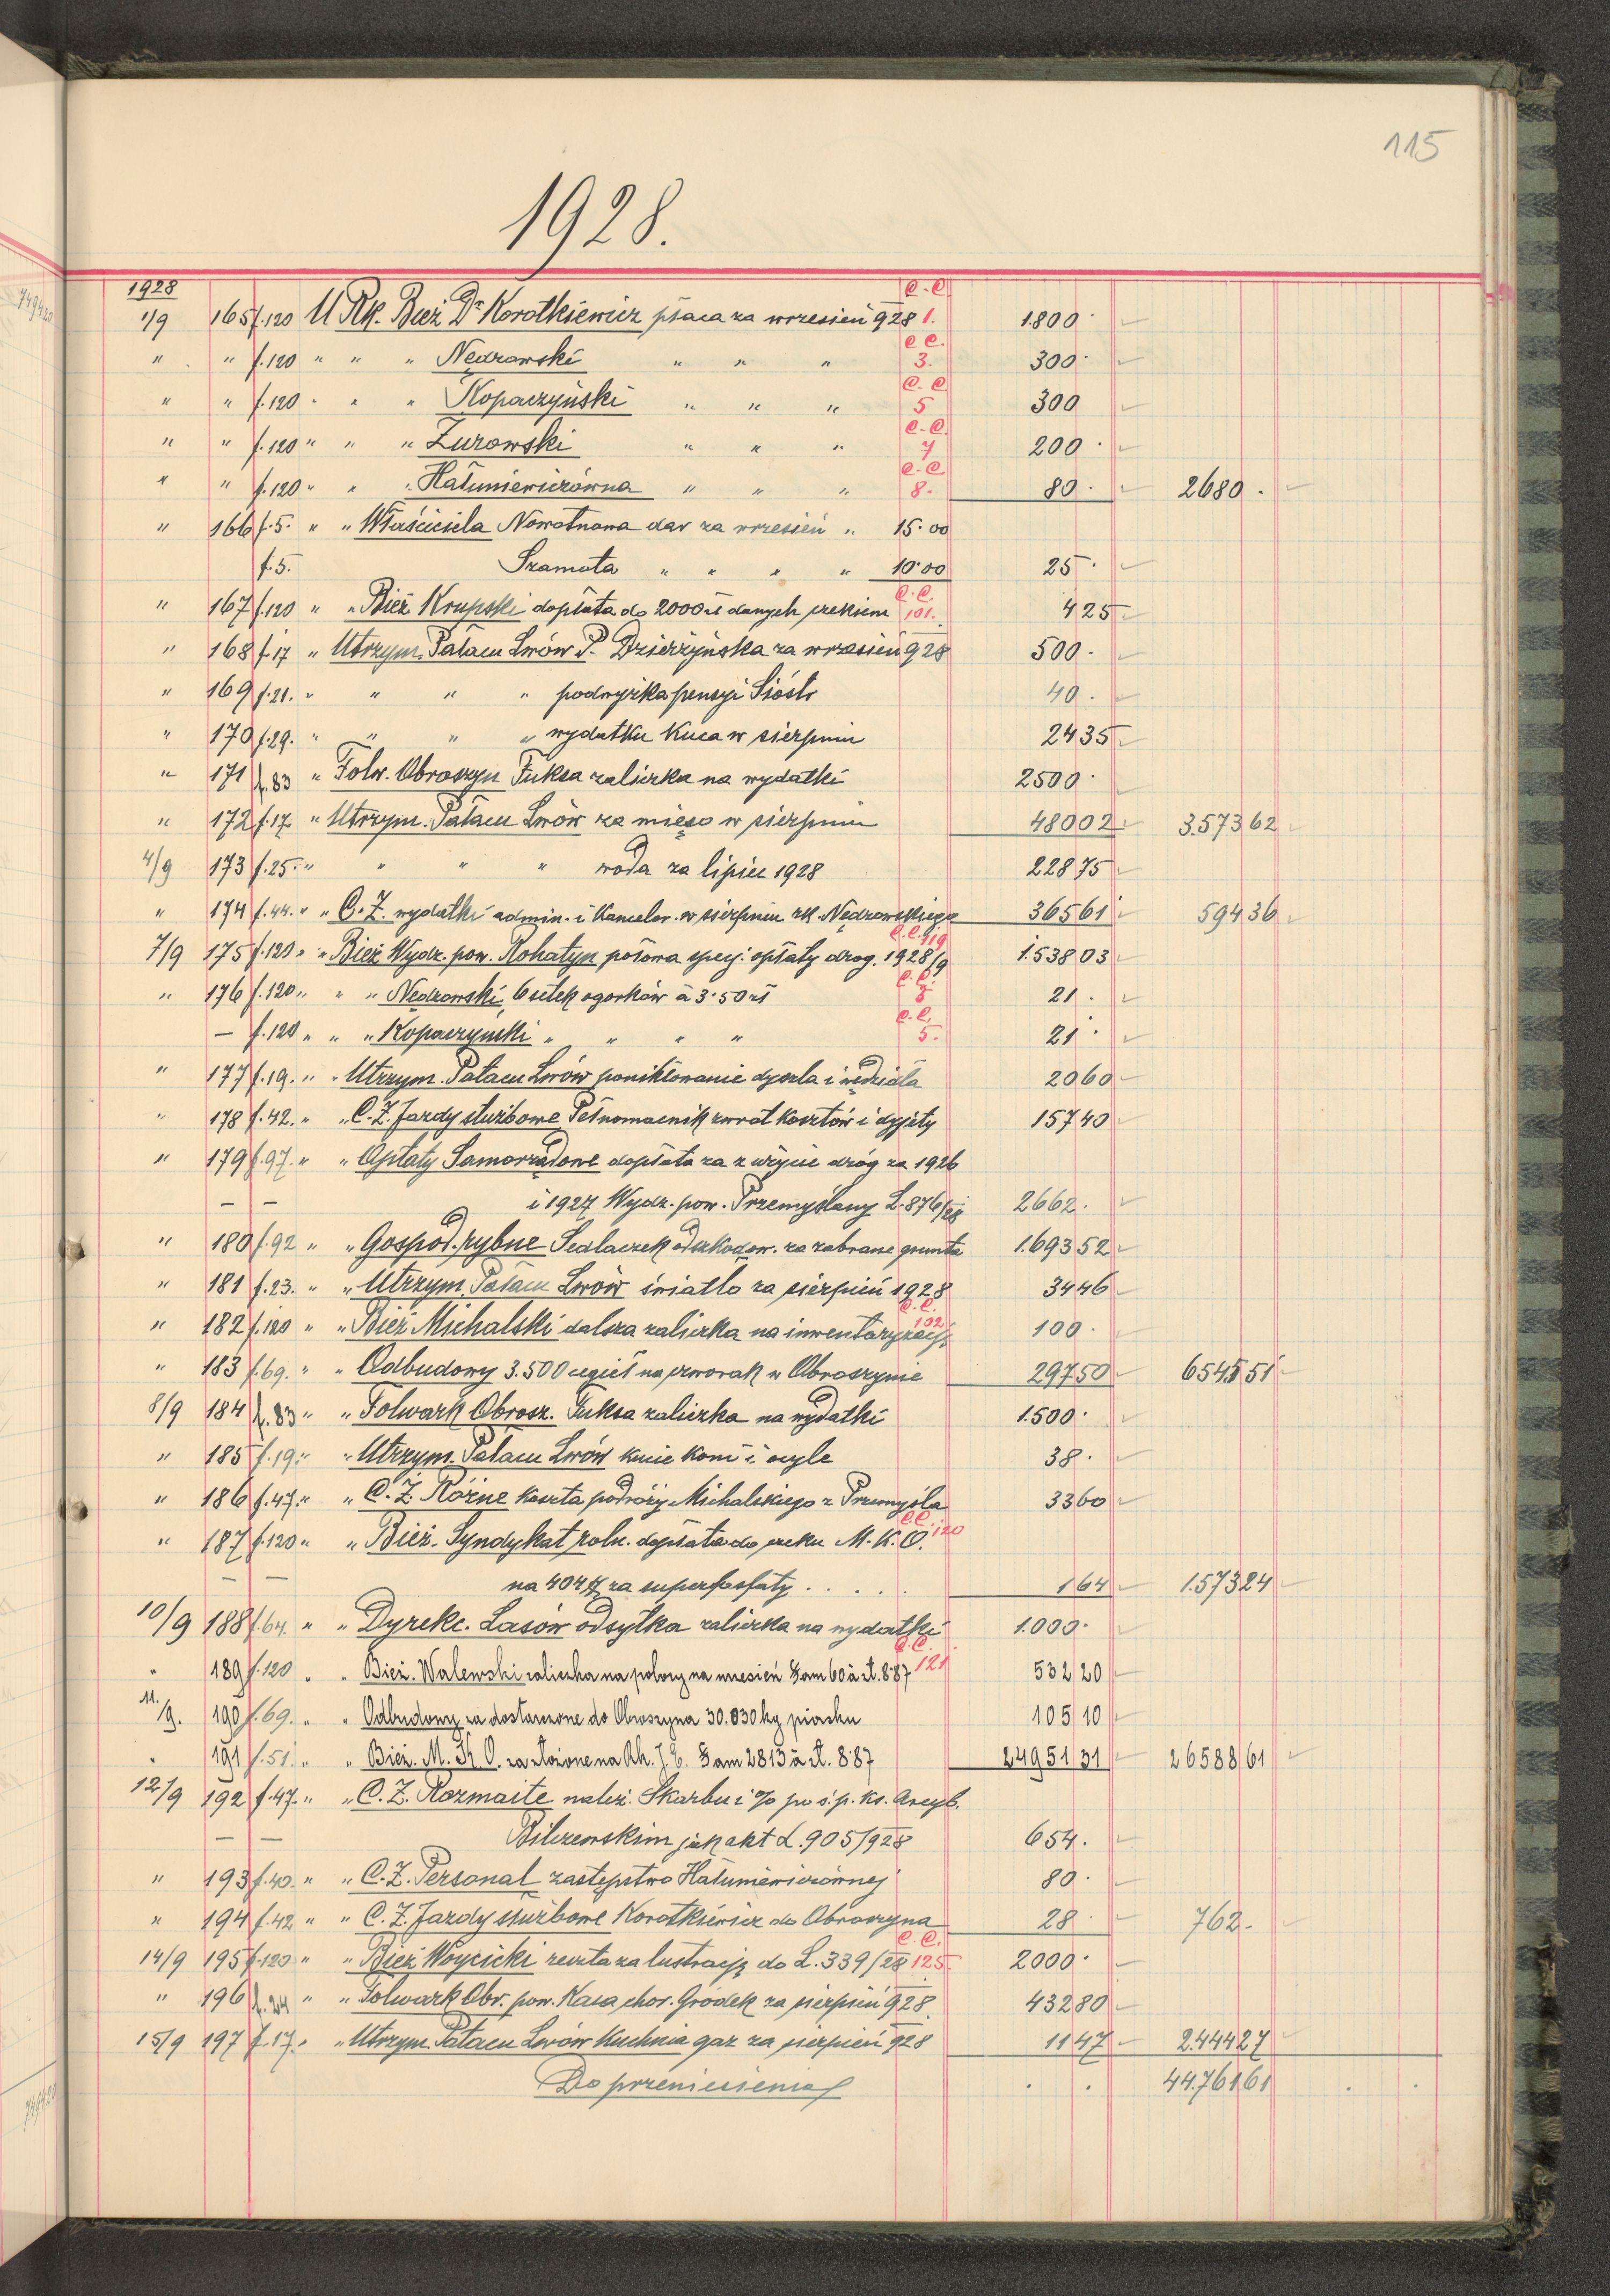 115
1928.
1928
1/9 165 f.120 U Rk. Bież Dr Korotkiewicz płaca za wrzesień 928 C.C. 1. 1.800·
" " f.120 " " " Nędzowski " " " C.C. 3. 300·
" " f.120 " " " Kopaczyński " " " C.C. 5 300
" " f.120 " " " Żurowski " " " C.C. 7 200·
" " f.120 " " " Hałuniewiczówna " " " C.C. 8. 80· 2680.
" 166 f.5. " " Właściciela Nowotnowa dar za wrzesień " 15·00
f.5. Szamota " " " " 10·00 25·
" 167 f.120 " " Bież Krupski dopłata do 2000 zł danych czekiem C.C. 101. 4 25
" 168 f.17 " Utrzym. Pałacu Lwów P. Dzierżyńska za wrzesień 928 500·
" 169 f.21. " " " " podwyżka pensyi Sióstr 40.
" 170 f.29. " " " " wydatku Kuca w sierpniu 24 35
" 171 f.83 " Folw. Obroszyn Fuksa zaliczka na wydatki 2500·
" 172 f.17. " Utrzym. Pałacu Lwów za mięso w sierpniu 480 02 3.573 62
4/9 173 f.25. " " " " woda za lipiec 1928 228 75
" 174 f.44. " " C.Z. wydatki admin. i kancelar. w sierpniu rk. Nędzowskiego 365 61 594 36
7/9 175 f.120 " " Bież Wydz. pow. Rohatyn połowa specj. opłaty drog. 1928/9 C.C. 119 1.538 03
" 176 f.120 " " " Nędzowski, 6 setek ogórków à 3·50 zł C.C. 3 21.
— f.120 " " " Kopaczynski " " " " C.C. 5. 21·
" 177 f.19. " " Utrzym. Pałacu Lwów poniklowanie dyszla i wędzidła 20 60
" 178 f.42. " " C.Z. Jazdy służbowe Pełnomocnik zwrot kosztów i dyjety 157 40
" 179 f.97. " " Opłaty Samorządowe dopłata za zużycie dróg za 1926
— — i 1927 Wydz. pow. Przemyślany L.876/28 2662.
" 180 f.92 " " Gospod. rybne Sedlaczek odszkodow. za zabrane grunta 1.693 52
" 181 f.23. " " Utrzym. Pałacu Lwów światło za sierpień 1928 34 46
" 182 f.120 " " Bież Michalski dalsza zaliczka na inwentaryzację C.C. 102 100·
" 183 f.69. " " Odbudowy 3.500 cegieł na czworak w Obroszynie 297 50 6545 51
8/9 184 f.83 " " Folwark Obrosz. Fuksa zaliczka na wydatki 1.500·
" 185 f.19. " " Utrzym. Pałacu Lwów kucie koni i ocyle 38.
" 186 f.47. " " C.Z. Różne koszta podróży Michalskiego z Przemyśla 33 60
" 187 f.120 " " Bież. Syndykat roln. dopłata do czeku M.K.O. C.C. 120
— — na 404 $ za superfosfaty . . . . . 1 64 1.573 24
10/9 188 f.64. " " Dyrekc. Lasów odsyłka zaliczka na wydatki 1.000·
" 189 f.120 " " Bież. Walewski zaliczka na pobory na wrzesień $am 60 à zł. 8·87 C.C. 121 532 20
11./9. 190 f.69. " " Odbudowy za dostarczone do Obroszyna 30.030 kg piasku 105 10
" 191 f.51. " " Bież. M.K.O. za złożone na Rh. J.E. $am 2813 à zł. 8·87 24951 31 26588 61
12/9 192 f.47. " " C.Z. Rozmaite należ. Skarbu i % po ś.p. ks. Arcyb.
— — Bilczewskim jak akt L.905/928 654.
" 193 f.40. " " C.Z. Personal zastępstwo Hałuniewiczównej 80.
" 194 f.42 " " C.Z. Jazdy służbowe Korotkiewicz do Obroszyna 28· 762.
14/9 195 f.120 " " Bież Woycicki reszta za lustrację do L.339/28 C.C. 125 2000·
" 196 f.24 " " Folwark Obr. pow. Kasa chor. Gródek za sierpień 928 432 80
15/9 197 f.17. " " Utrzym. Pałacu Lwów Kuchnia gaz za sierpień 928 11 47 2.444 27
Do przeniesienia . . 44.761 61 . .